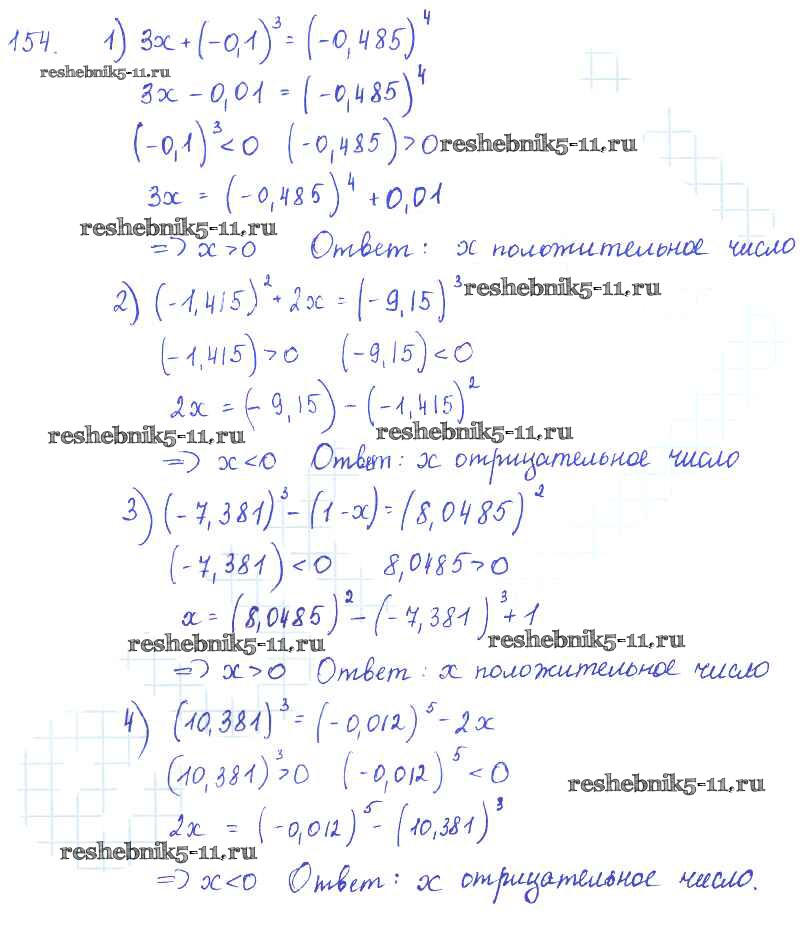 154. 1) 3x + (-0,1)³ = (-0,485)⁴
reshebnik5-11.ru
3x - 0,01 = (-0,485)⁴
(-0,1)³ < 0 (-0,485) > 0 reshebnik5-11.ru
3x = (-0,485)⁴ + 0,01
reshebnik5-11.ru
=> x > 0 Ответ: x положительное число
2) (-1,415)² + 2x = (-9,15)³ reshebnik5-11.ru
(-1,415) > 0 (-9,15) < 0
2x = (-9,15) - (-1,415)²
reshebnik5-11.ru reshebnik5-11.ru
=> x < 0 Ответ: x отрицательное число
3) (-7,381)³ - (1-x) = (8,0485)²
(-7,381) < 0 8,0485 > 0
x = (8,0485)² - (-7,381)³ + 1
reshebnik5-11.ru reshebnik5-11.ru
=> x > 0 Ответ: x положительное число
4) (10,381)³ = (-0,012)⁵ - 2x
(10,381)³ > 0 (-0,012)⁵ < 0
reshebnik5-11.ru
2x = (-0,012)⁵ - (10,381)³
reshebnik5-11.ru
=> x < 0 Ответ: x отрицательное число.